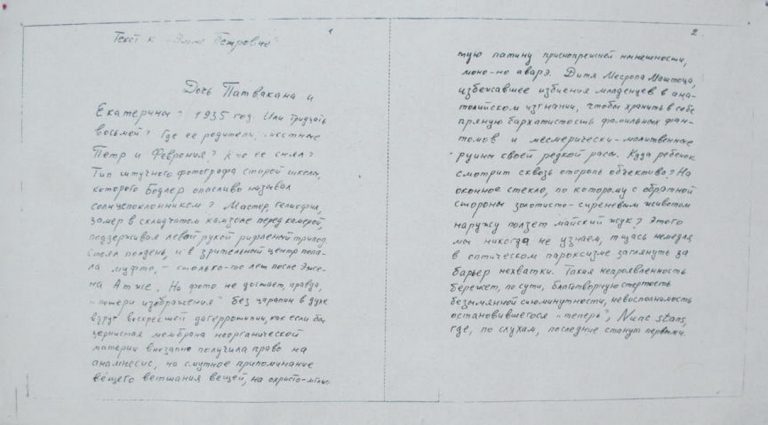 1
Текст к "Анне Петровне"
Дочь Патвакана и
Екатерины? 1935 год Или тридцать
восьмой? Где ее родители, местные
Петр и Феврония? Кто ее снял?
Тип штучного фотографа старой школы,
которого Бодлер опасливо называл
солнцепоклонником? Мастер гелиографии,
замер в складчатом камзоле перед камерой,
поддерживая левой рукой рифленый трипод.
Стоял полдень, и в зрительный центр попа-
ла муфта, – сколько-то лет после Эже-
на Атже. На фото не достает, правда,
"потери изображения" без царапин в духе
вдруг воскресшей дагерротипии, как если бы
зернистая мембрана неорганической
материи внезапно получила право на
анамнесис, на смутное припоминание
вещего ветшания вещей, на охристо-мгли-
2
тую патину приснопрешней нынешности,
моно-но аварэ. Дитя Месропа Маштоца,
избежавшее избиения младенцев в ана-
толийском изгнании, чтобы хранить в себе
пряную бархатистость фамильных фан-
томов и месмерически-молитвенные
руины своей редкой расы. Куда ребенок
смотрит сквозь оторопь объектива? На
оконное стекло, по которому с обратной
стороны золотисто-сиреневым животом
наружу ползет майский жук? Этого
мы никогда не узнаем, тщась немедля
в оптическом пароксизме заглянуть за
барьер нехватки. Такая непроявленность
бережет, по сути, благотворную стертость
безымянной сиюминутности, невосполнимость
остановившегося "теперь", Nunc stans,
где, по слухам, последние станут первыми.